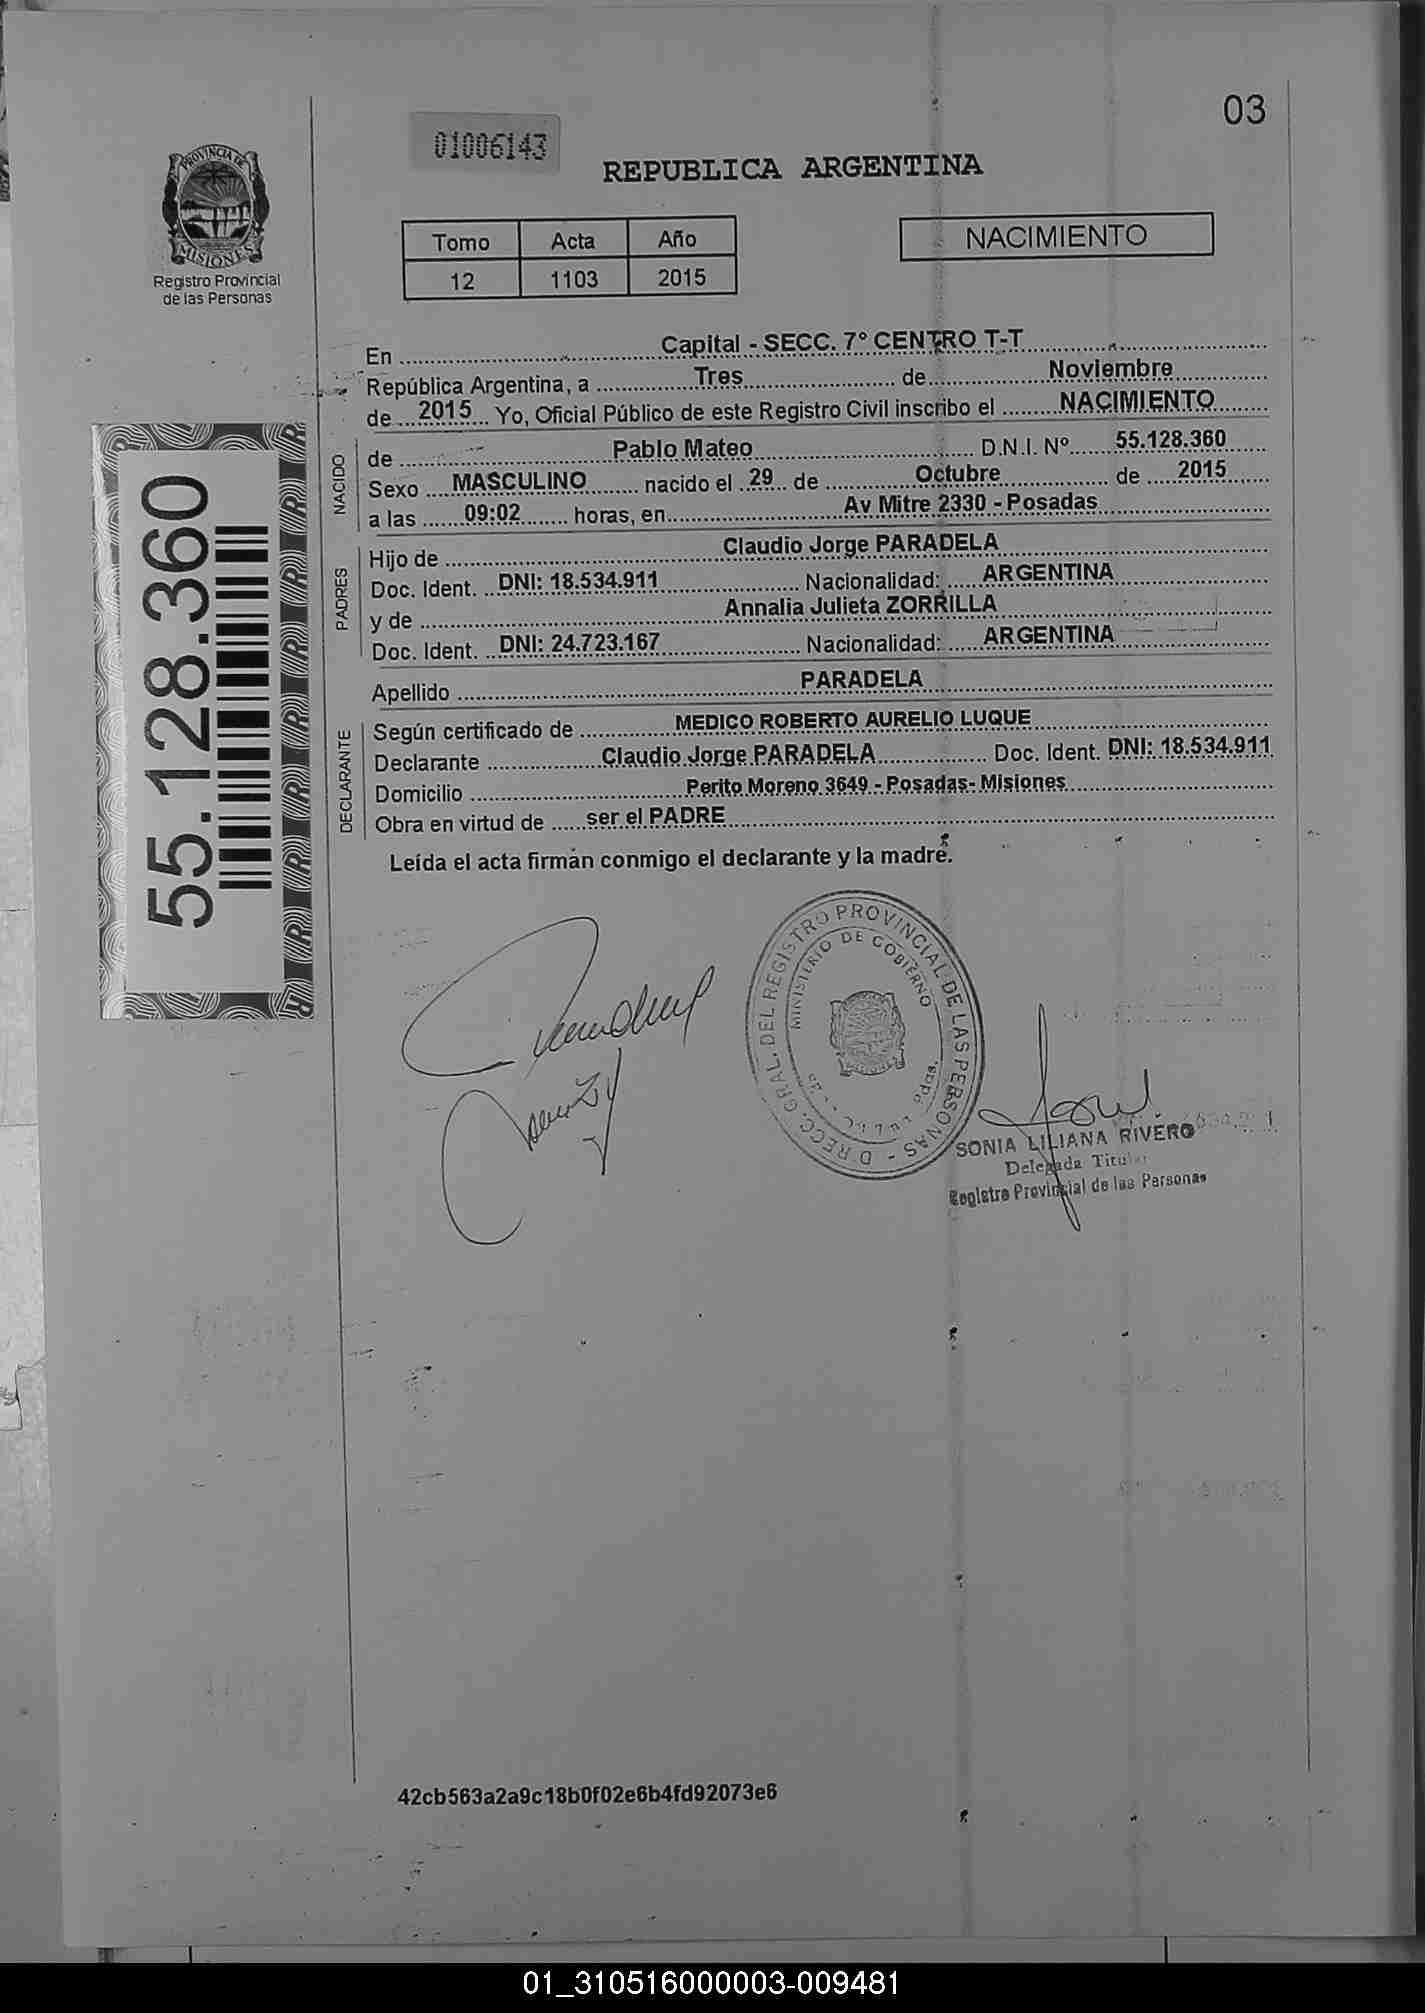 03
01006143
REPUBLICA ARGENTINA
PROVINCIA DE
MISIONES
Registro Provincial
de las Personas
Tomo Acta Año
12 1103 2015
NACIMIENTO
En Capital - SECC. 7º CENTRO T-T
República Argentina, a Tres de Noviembre
de 2015 Yo, Oficial Público de este Registro Civil inscribo el NACIMIENTO
NACIDO
de Pablo Mateo D.N.I. Nº 55.128.360
Sexo MASCULINO nacido el 29 de Octubre de 2015
a las 09:02 horas, en Av Mitre 2330 - Posadas
PADRES
Hijo de Claudio Jorge PARADELA
Doc. Ident. DNI: 18.534.911 Nacionalidad: ARGENTINA
y de Annalia Julieta ZORRILLA
Doc. Ident. DNI: 24.723.167 Nacionalidad: ARGENTINA
Apellido PARADELA
DECLARANTE
Según certificado de MEDICO ROBERTO AURELIO LUQUE
Declarante Claudio Jorge PARADELA Doc. Ident. DNI: 18.534.911
Domicilio Perito Moreno 3649 - Posadas- Misiones
Obra en virtud de ser el PADRE
Leída el acta firman conmigo el declarante y la madre.
55.128.360
DIRECC. GRAL. DEL REGISTRO PROVINCIAL DE LAS PERSONAS -
MINISTERIO DE GOBIERNO
SONIA LILIANA RIVERO
Delegada Titular
Registro Provincial de las Personas
42cb563a2a9c18b0f02e6b4fd92073e6
01_310516000003-009481